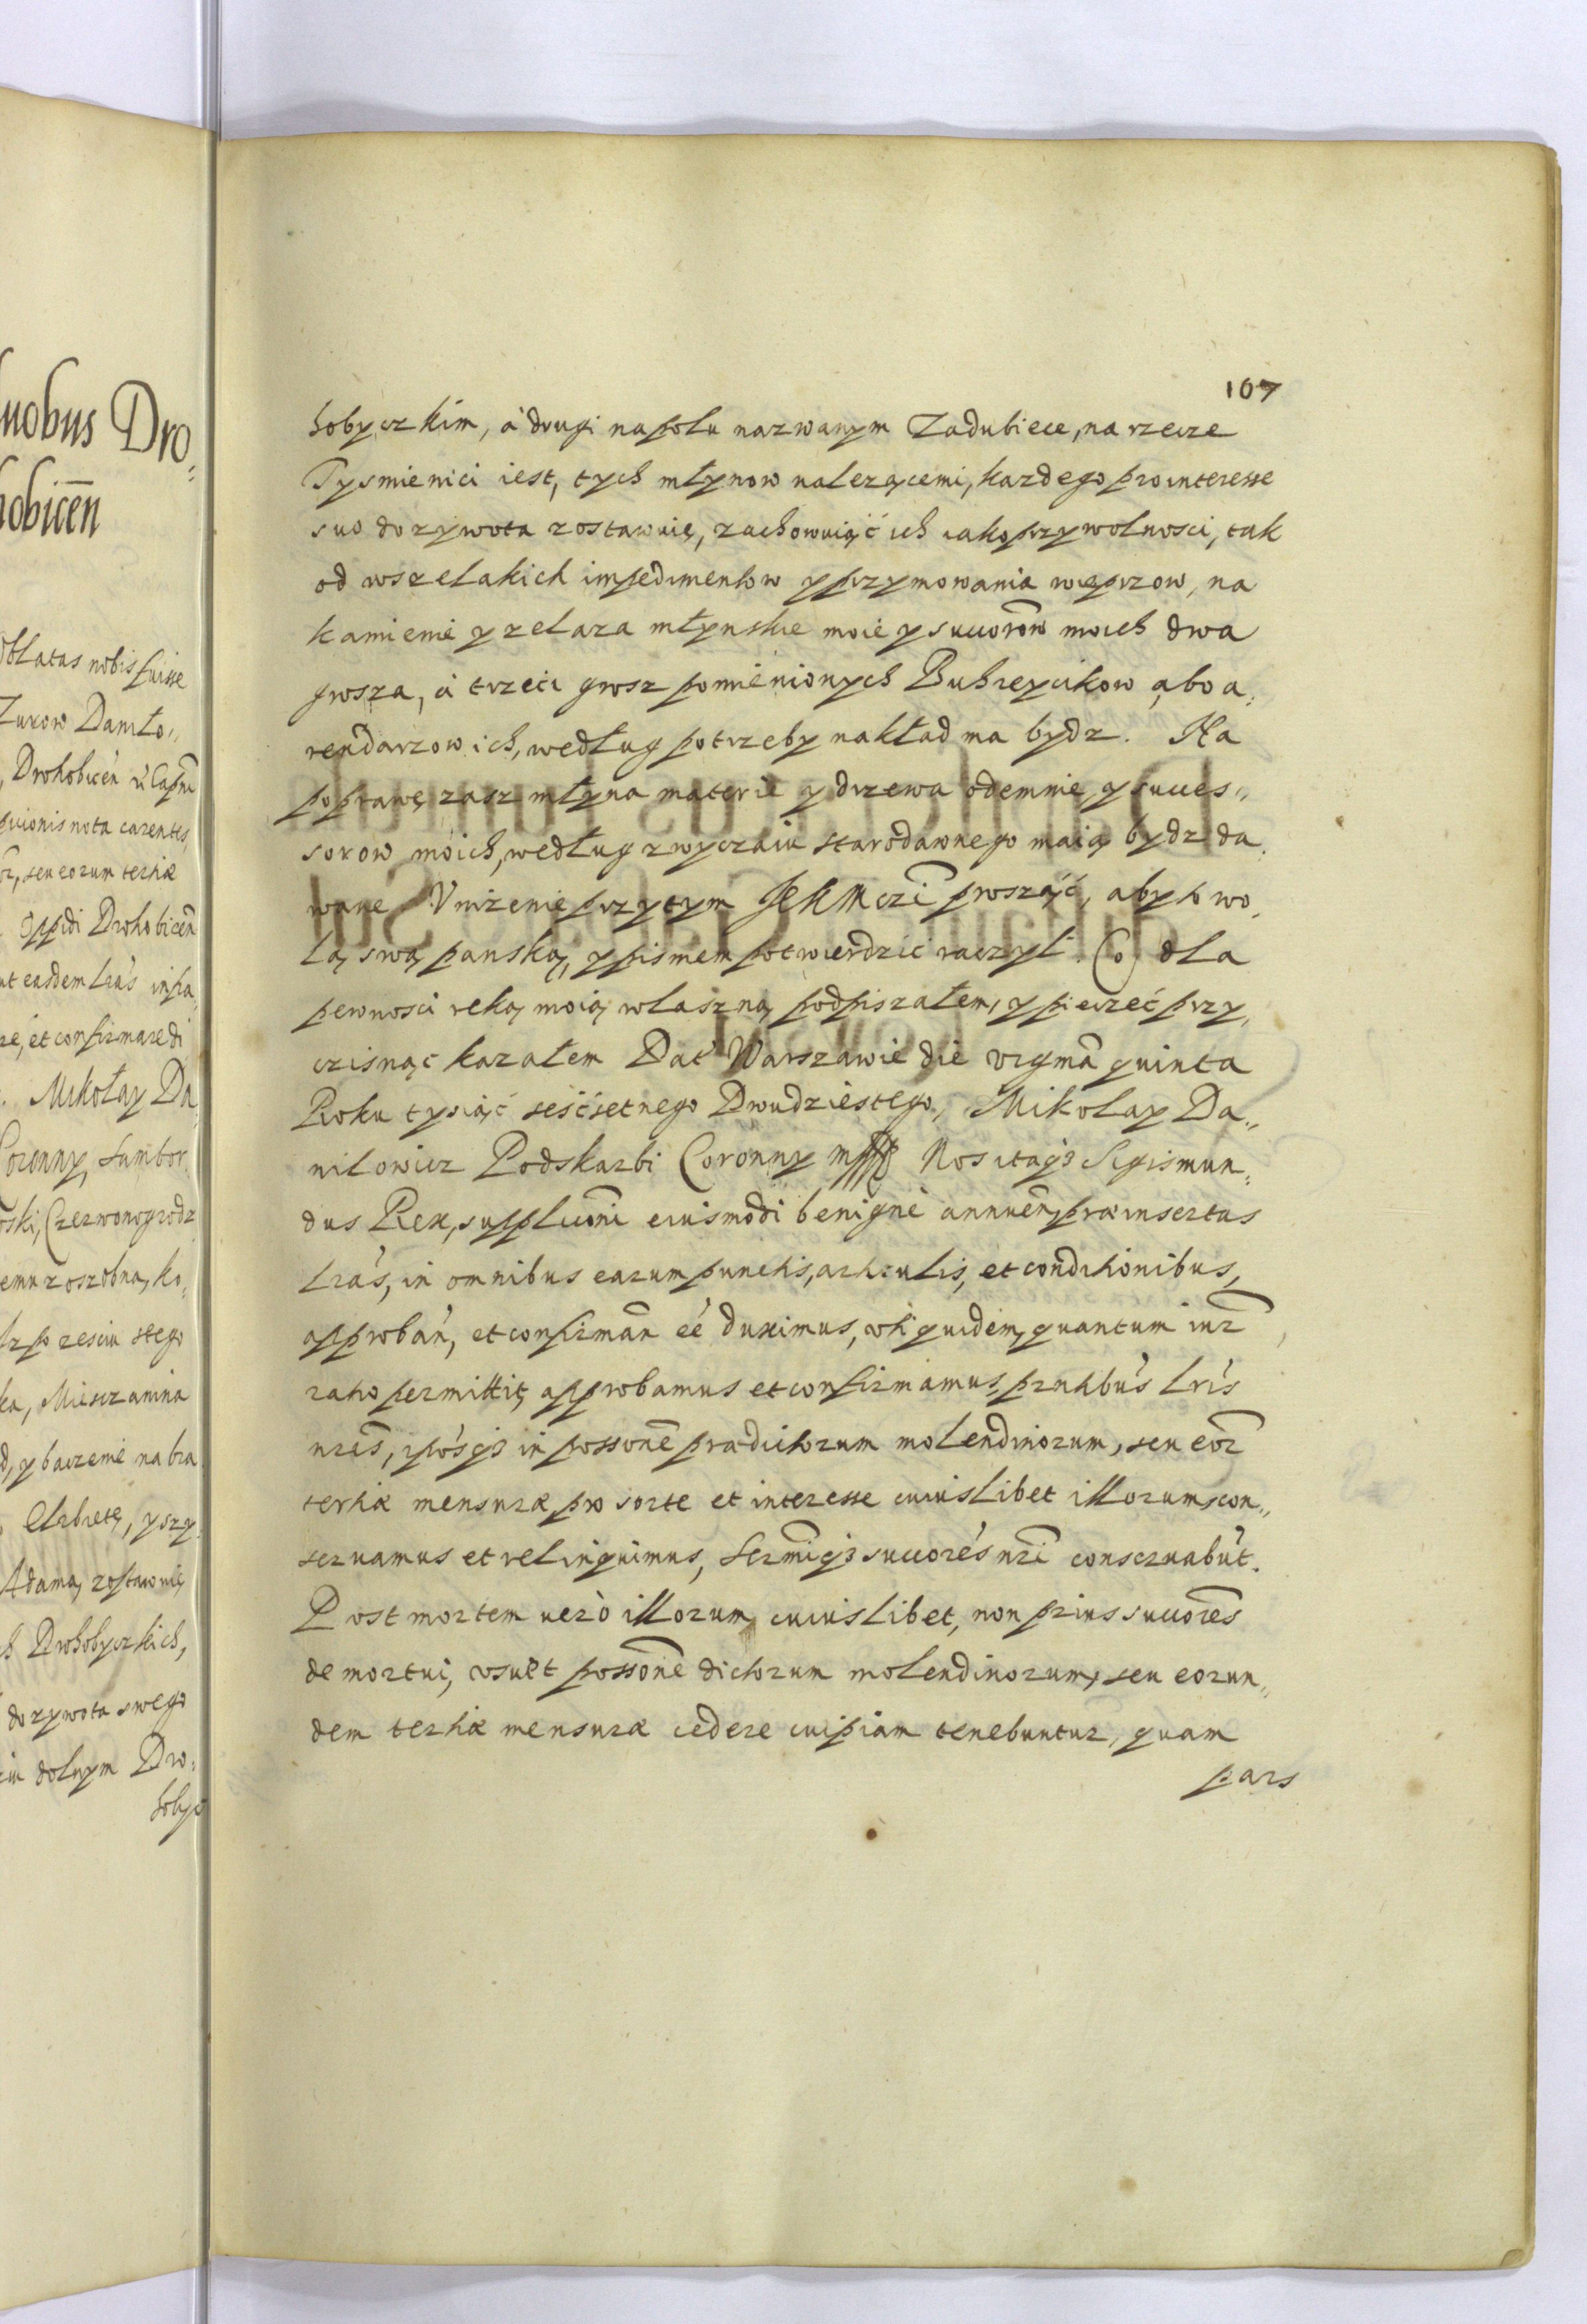 107
hobyczkim, à drugi na polu nazwanym Zadubiece, na rzecze
Tysmienici iest, tych młynow nalezącemi, kazdego pro interesse
suo dozywota zostawuię, zachowuiąć ich iako przy wolnosci, tak
od wszelakich impedimentow y przymowania wieprzow, na
kamienie y zelaza młynskie moie y succorow moich dwa
grosza, à trzeci grosz pomienionych Buhreycikow abo a,
rendarzow ich, według potrzeby nakład ma bydz. Na
poprawę zasz młyna materie y drzewa odemnie, y succes,,
sorow moich, według zwyczaiu starodawnego maią bydz da,
wane. Vnizenie przytym JeKMczi proszążć, aby to wo,
lą swą panską, y pismem potwierdzić raczył. Co dla
pewnosci reką moią właszną podpiszałem, y pieczeć przy,
czisnąć kazałem Dat Warszawie die vigma quinta
Roku tysiąć sesćsetnego Dwudziestego, Mikolay Da,,
nilowicz Podskarbi Coronny mp Nos itaqz Sigismun,
dus Rex, supplicōni eiusmodi benignè annuen, præinsertas
Lras, in omnibus earum punctis, articulis, et conditionibus,
approban, et confirman eé duximus, vti quidem, quantum iur
ratio permittit, approbamus et confirmamus, prntibus Lris
nris, ipósqz in possone prædictorum molendinorum, seu eor
tertiæ mensuræ pro sorte et interesse cuiuslibet illorum con,,
seruamus et relinquimus, Sermiqz succorés nri conseruabút.
Post mortem uerò illorum, cuiuslibet, non prius succores
demortui, vsu et possone dictorum molendinorum, seu eorun,,
dem tertiæ mensuræ cedere cuipiam tenebuntur, quam
pars
nobus Dro,
hobicen
Oblatas nobis fuisse
Daniło,,
Drohobicen
nota carentes,
seu eorum tertiæ
Oppidi Drohobicen
easdem Lras infra
et confirmare di
Mikołay Da
Coronny, Sambor
Czerwonogrodz
ko,
zesciu stego
Miesczanina
y baczenie na
Elzbietę, y
Adama, zostawuię
Drohobyczkich,
dozywota swego
dolnym Dro,
hobycz